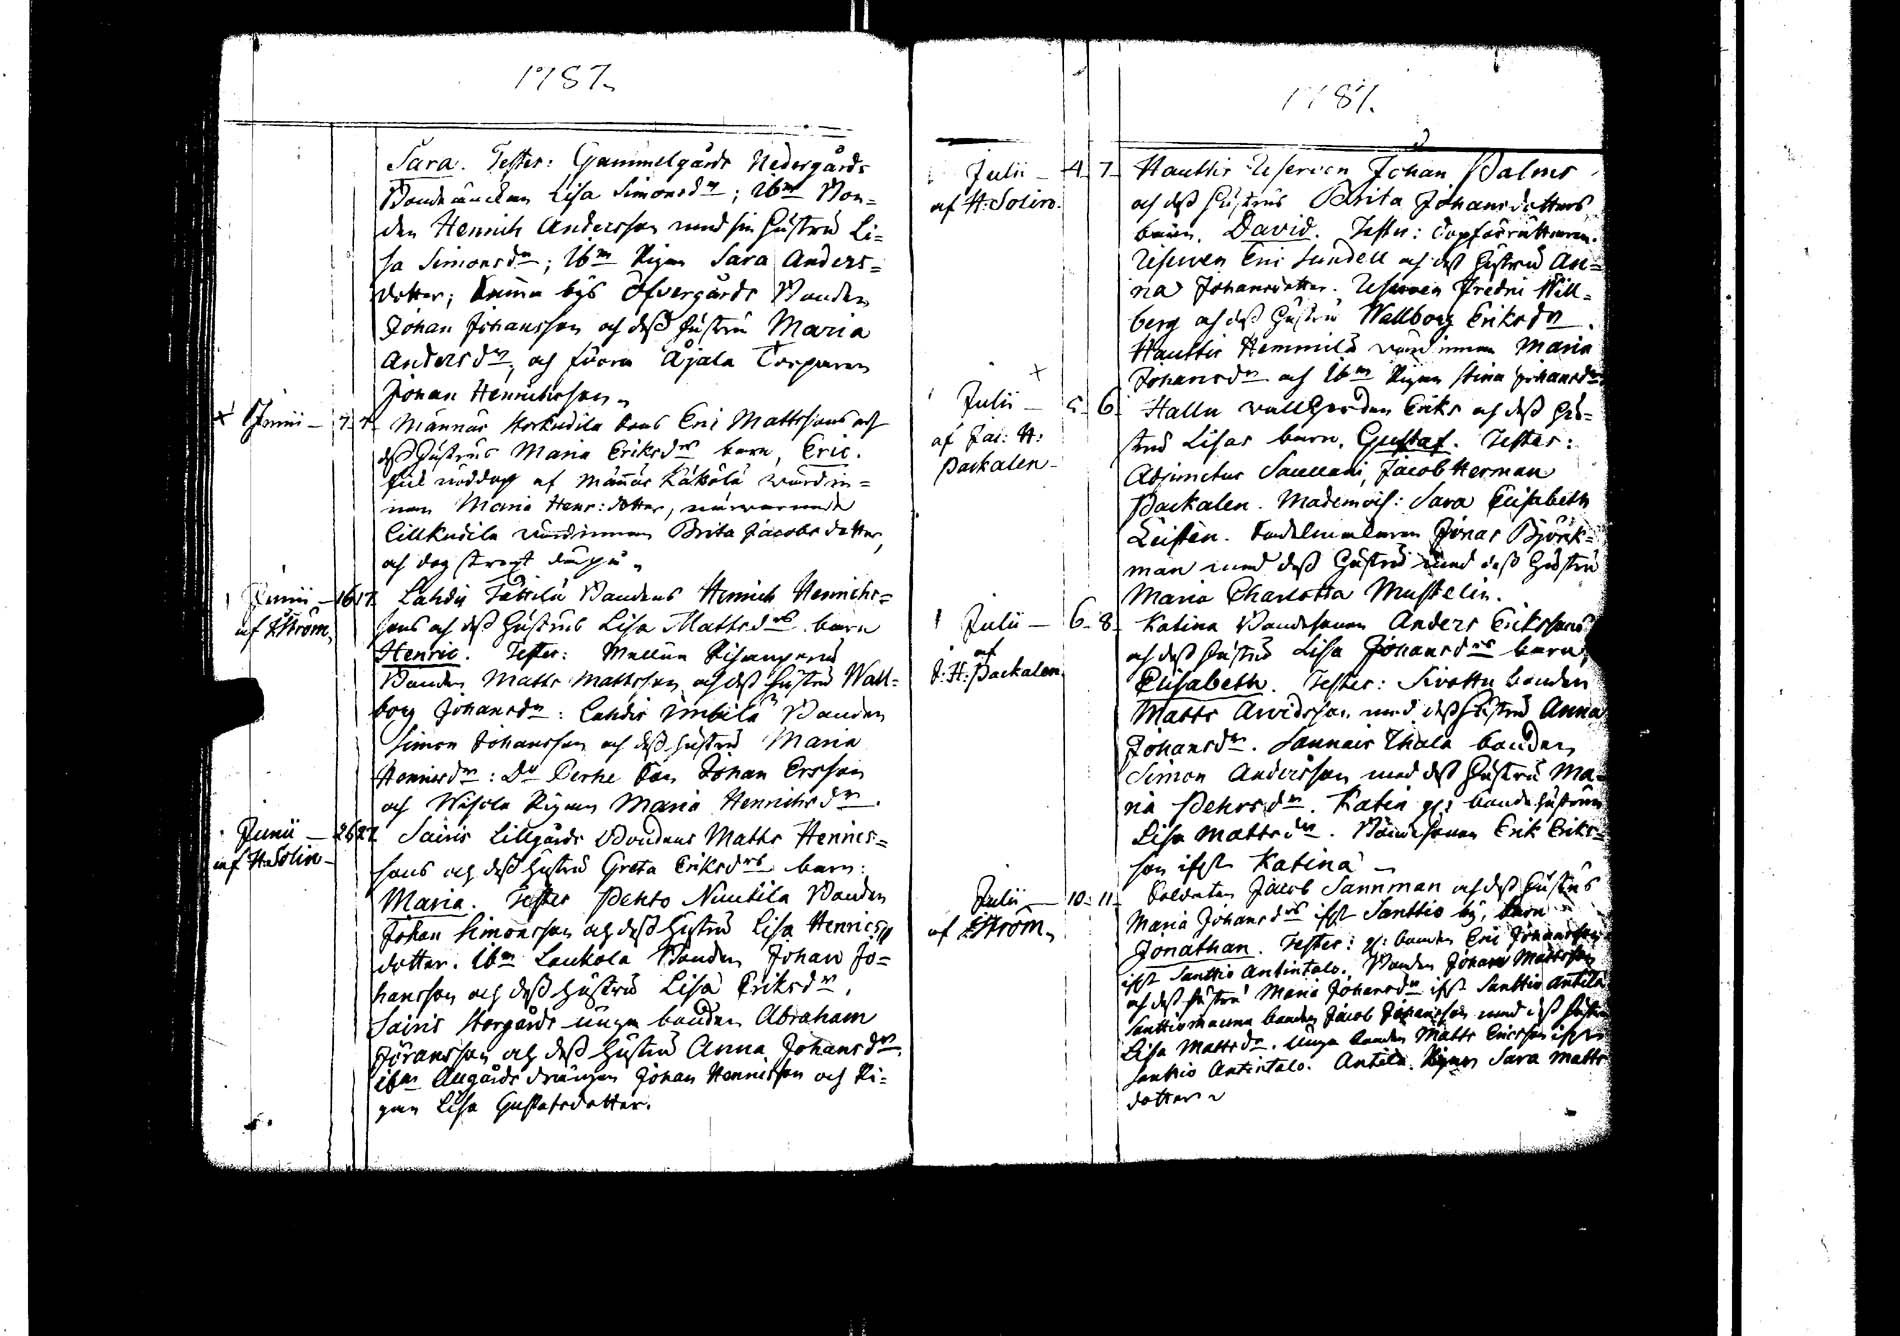 1787.
Sara. Testes: Gammelgårds Nedergårds
Bondeänckan Lisa Simonsdr; ibm Bon=
den Henrich Andersson med sin hustru Li=
sa Simonsdr; ibm Pigan Sara Anders=
dotter; samma bys Öfvergårds Bonden
Johan Johansson och dess hustru Maria
Andersdr, och förra Äjälä Torparen
Johan Henrichsson.
Junii - 7. 7. Männäs Storkudila Sons Eric Mattssons och
dess hustrus Maria Eriksdrs barn, Eric.
fick nöddop af Männäs Käkölä wärdin=
nan Maria Henr: dotter, närwarande
Lillkudila wärdinnan Brita Jacobsdotter,
och dog straxt derpå.
Junii - 16 17. Lahdis Tättilä Bondens Henrich Henrichs=
af Ström.
sons och dess hustrus Lisa Mattsdrs barn
Henric. Testes:
Bonden Matts Mattsson och dess hustru Wall=
borg Johansdr: Lahdis Bonden
Simon Johansson och dess hustru Maria
Henricsdr: Do Johan Ersson
och Pigan Maria Henrichsdr.
Junii - 26 27. Sairis Lillgårds Bondens Matts Henrics=
af H. Solin
sons och dess hustru Greta Eriksdrs barn:
Maria. Testes Pehto Nuutila Bonden
Johan Simonsson och dess hustru Lisa Henrics
dotter. ibm Laukola Bonden Johan Jo=
hansson och dess hustru Lisa Eriksdr.
Sairis Storgårds unga bonden Abraham
Jöransson och dess hustru Anna Johansdr.
ibm Augårds drängen Johan Henricsson och Pi=
gan Lisa Gustafsdotter.
1787.
Julii - 4. 7. Hauttis Reserven Johan Palms
af H. Solin.
och dess hustrus Brita Johansdotters
barn. David. Testes: Dopförrättaren.
Reserven Eric Sundell och dess hustru An=
na Johansdotter. Reserven Fredric Will=
berg och dess hustru Wallborg Eriksdr.
Hauttis Hemmilä wärdinnan Maria
Johansdr och ibm Pigan Stina Johansdr
Julii - 5. 6. Hallu vallherden Eriks och dess hu=
af Jac: H:
Packalen
stru Lisas barn, Gustaf. Testes:
Adjunctus Sacellani, Jacob Herman
Packalen. Mademois: Sara Elisabeth
Leisten. Sadelmakaren Jonas Björk=
man med dess hustru
Maria Charlotta Mustelin.
Julii - 6. 8. Katina Bondesonen Anders Erikssons
af
J: H: Packalen.
och dess hustru Lisa Johansdrs barn,
Elisabeth. Testes: Sivottu bonden
Matts Arvidsson med dess hustru Anna
Johansdr. Sannais Thala bonden
Simon Andersson med dess hustru Ma=
ria Pehrsdr. Katin gl: bondehustrun
Lisa Mattsdr. Bondesonen Erik Eriks=
son ifrån Katina
Julii - 10. 11. Soldaten Jacob Sannman och dess hustrus
af Ström.
Maria Johansdrs ifrån Santtio by, barn
Jonathan. Testes: gl: bonden Eric Johansson
ifrån Santtio Antintalo. Bonden Johan Mattsson
och dess hustru Maria Johansdr ifrån Santtio Antila
Santtiomauna bonden Jacob Johansson med dess hustru
Lisa Mattsdr. Unga bonden Matts Ericsson ifrån
Santtio Antintalo. Antila Pigan Sara Matts
dotter